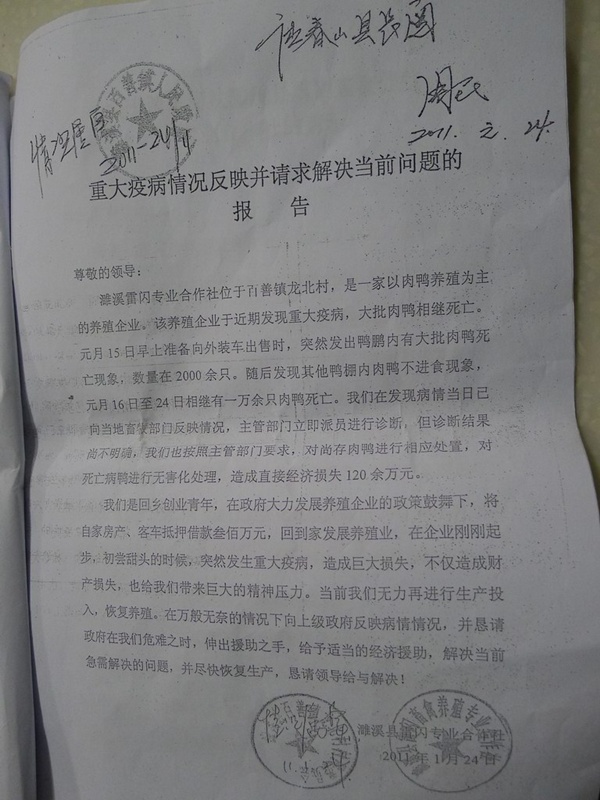 情况属实
2011-24/1
2011. 元. 24.
重大疫病情况反映并请求解决当前问题的
报 告
尊敬的领导：
濉溪雷闪专业合作社位于百善镇龙北村，是一家以肉鸭养殖为主
的养殖企业。该养殖企业于近期发现重大疫病，大批肉鸭相继死亡。
元月15日早上准备向外装车出售时，突然发出鸭鹏内有大批肉鸭死
亡现象，数量在2000余只。随后发现其他鸭棚内肉鸭不进食现象，
元月16日至24日相继有一万余只肉鸭死亡。我们在发现病情当日已
向当地畜牧部门反映情况，主管部门立即派员进行诊断，但诊断结果
尚不明确，我们也按照主管部门要求，对尚存肉鸭进行相应处置，对
死亡病鸭进行无害化处理，造成直接经济损失120余万元。
我们是回乡创业青年，在政府大力发展养殖企业的政策鼓舞下，将
自家房产、客车抵押借款叁佰万元，回到家发展养殖业，在企业刚刚起
步，初尝甜头的时候，突然发生重大疫病，造成巨大损失，不仅造成财
产损失，也给我们带来巨大的精神压力。当前我们无力再进行生产投
入，恢复养殖。在万般无奈的情况下向上级政府反映病情情况，并恳请
政府在我们危难之时，伸出援助之手，给予适当的经济援助，解决当前
急需解决的问题，并尽快恢复生产，恳请领导给与解决！
濉溪县雷闪专业合作社
2011年1月24日